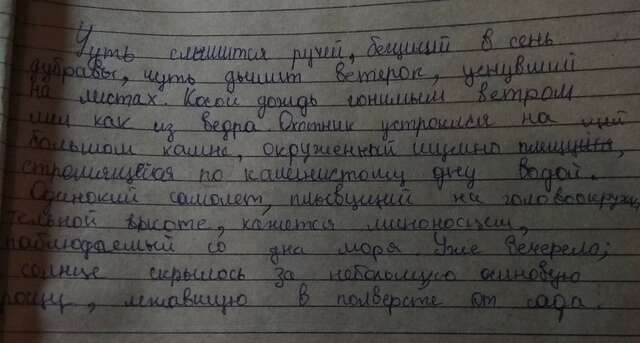 Чуть слышится ручей, бещщий в сень
дубравы, чуть дышит ветерок, уснувший
на листах. Косой дождь гонимым ветром
лил как из ведра. Охотник устроился на
большом камне, окруженный шумно
стремящейся по каменистому дну водой.
Одинокий самолет, плывущий на головокружи
тельной высоте, кажется миноносцем,
наблюдаемый со дна моря. Уже вечерело;
солнце скрылось за небольшую осиновую
рощу, лежавшую в полверсте от сада.